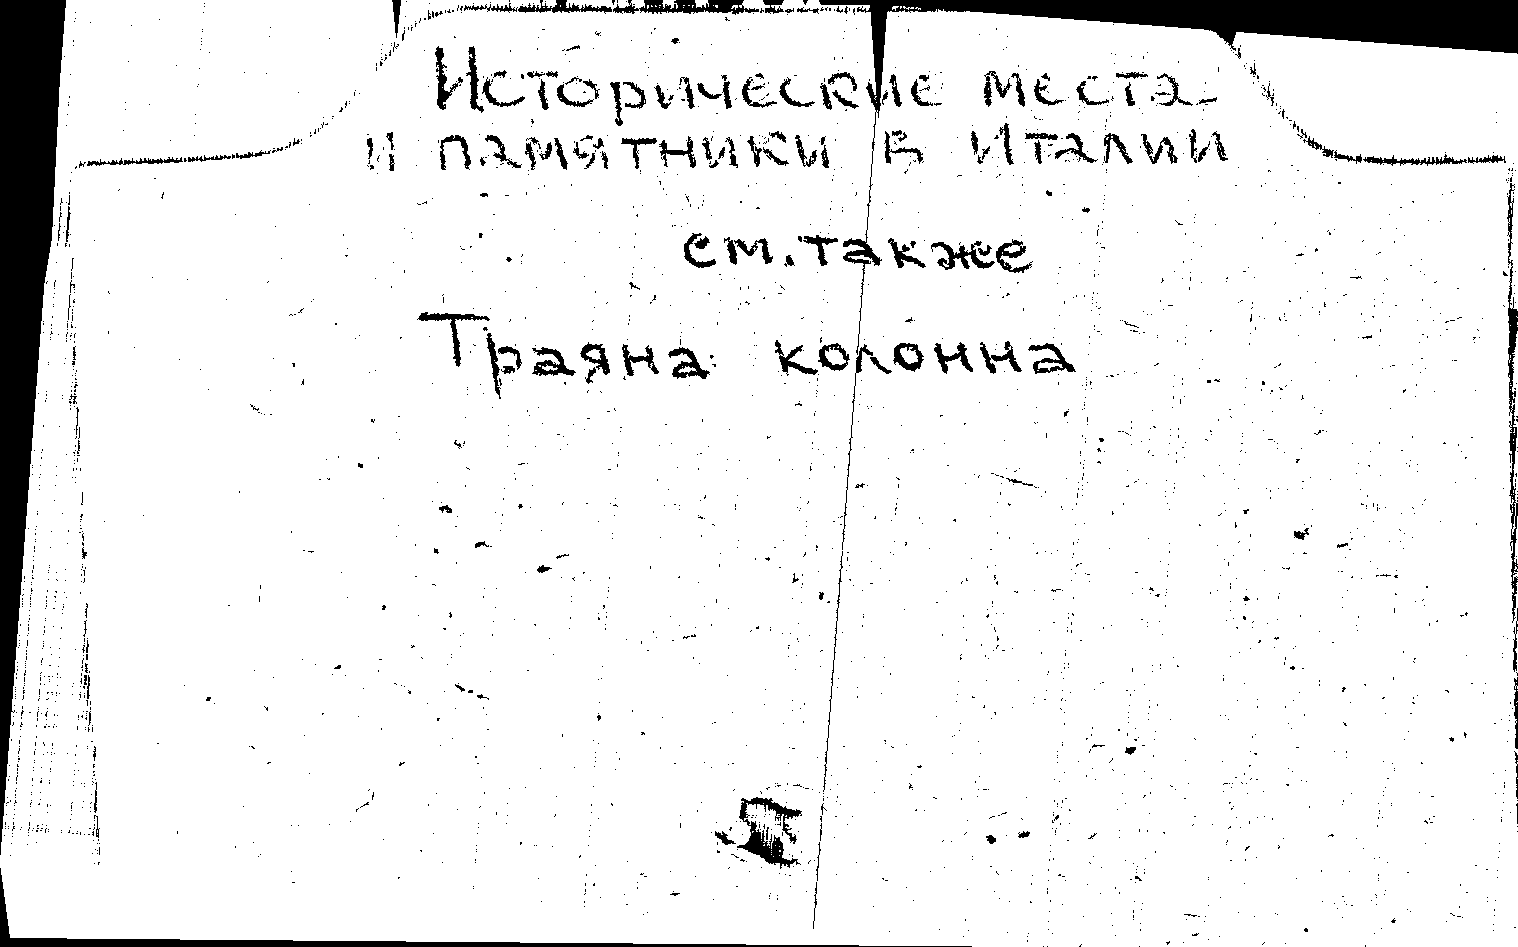 Исторические места
и памятники в Италии
см. также
Траяна колонна